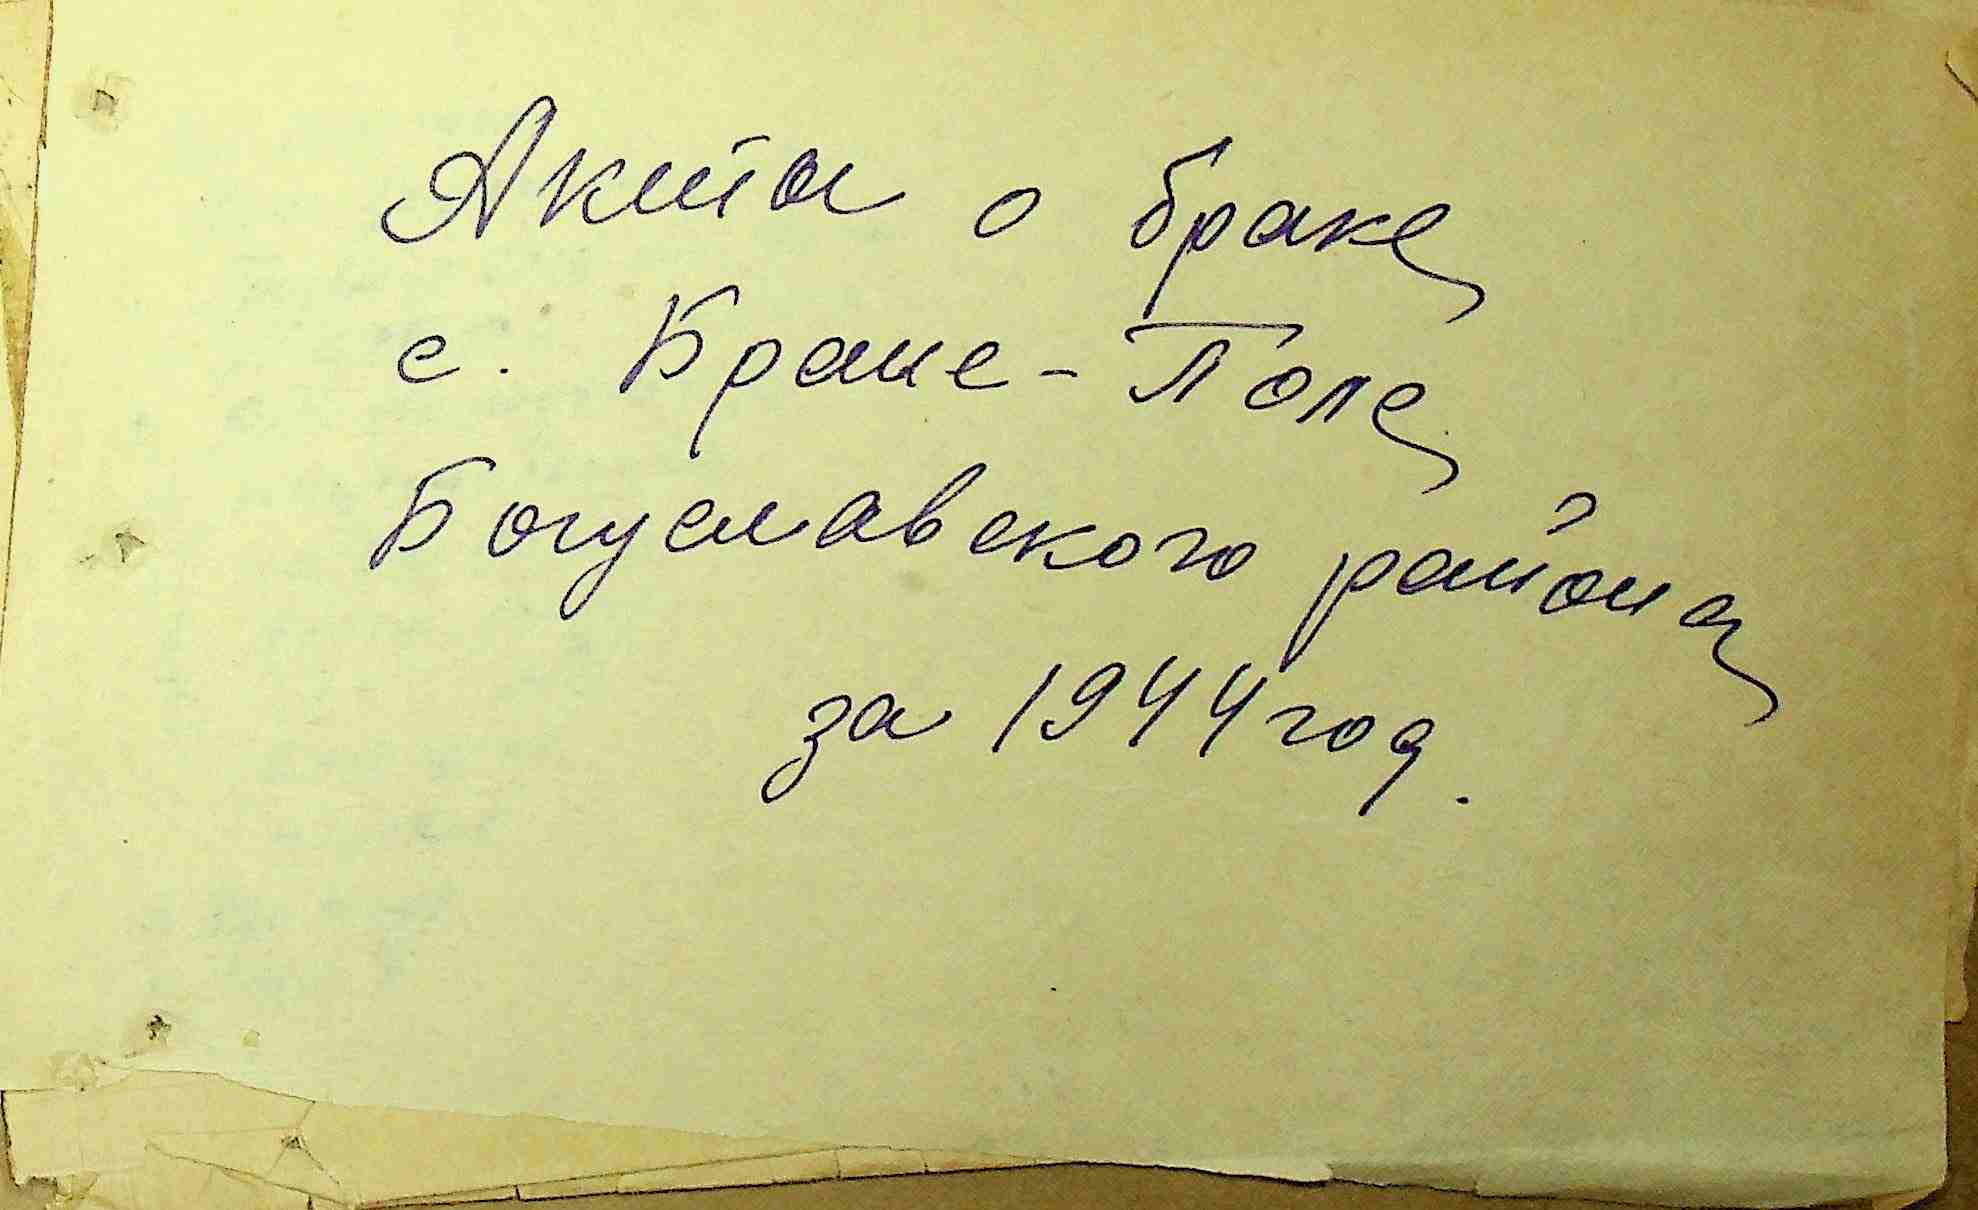 Акты о браке
с. Бране-Поле
Богуславского района
за 1944 год.